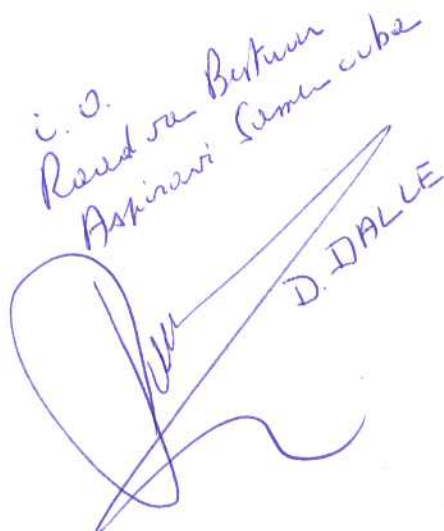 i.o.
Raad van Bestuur
Aspiravi Samen cvba
D. DALLE